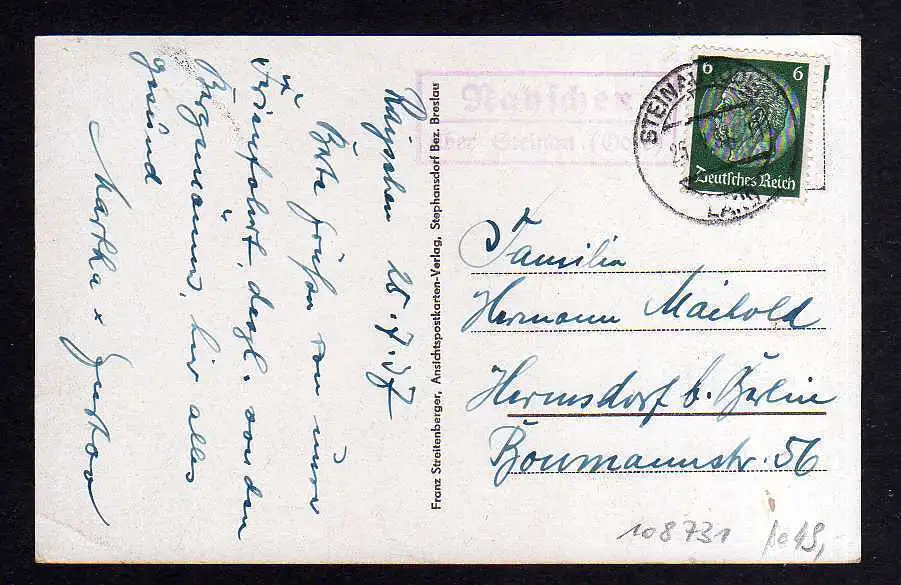 Rayschen 25.7.37
Beste Grüße von unsre
Ferienfahrt, desgl. von den
Bergmanns, hir alles
gesund
Martha & Gustav
Franz Streitenberger, Ansichtspostkarten-Verlag, Stephansdorf Bez. Breslau
Rayschen
über Steinau (Oder)
STEINAU
LAND
25
6 6
Deutsches Reich
Familie
Hermann Maibold
Hermsdorf b. Berlin
Boumannstr. 56
108731